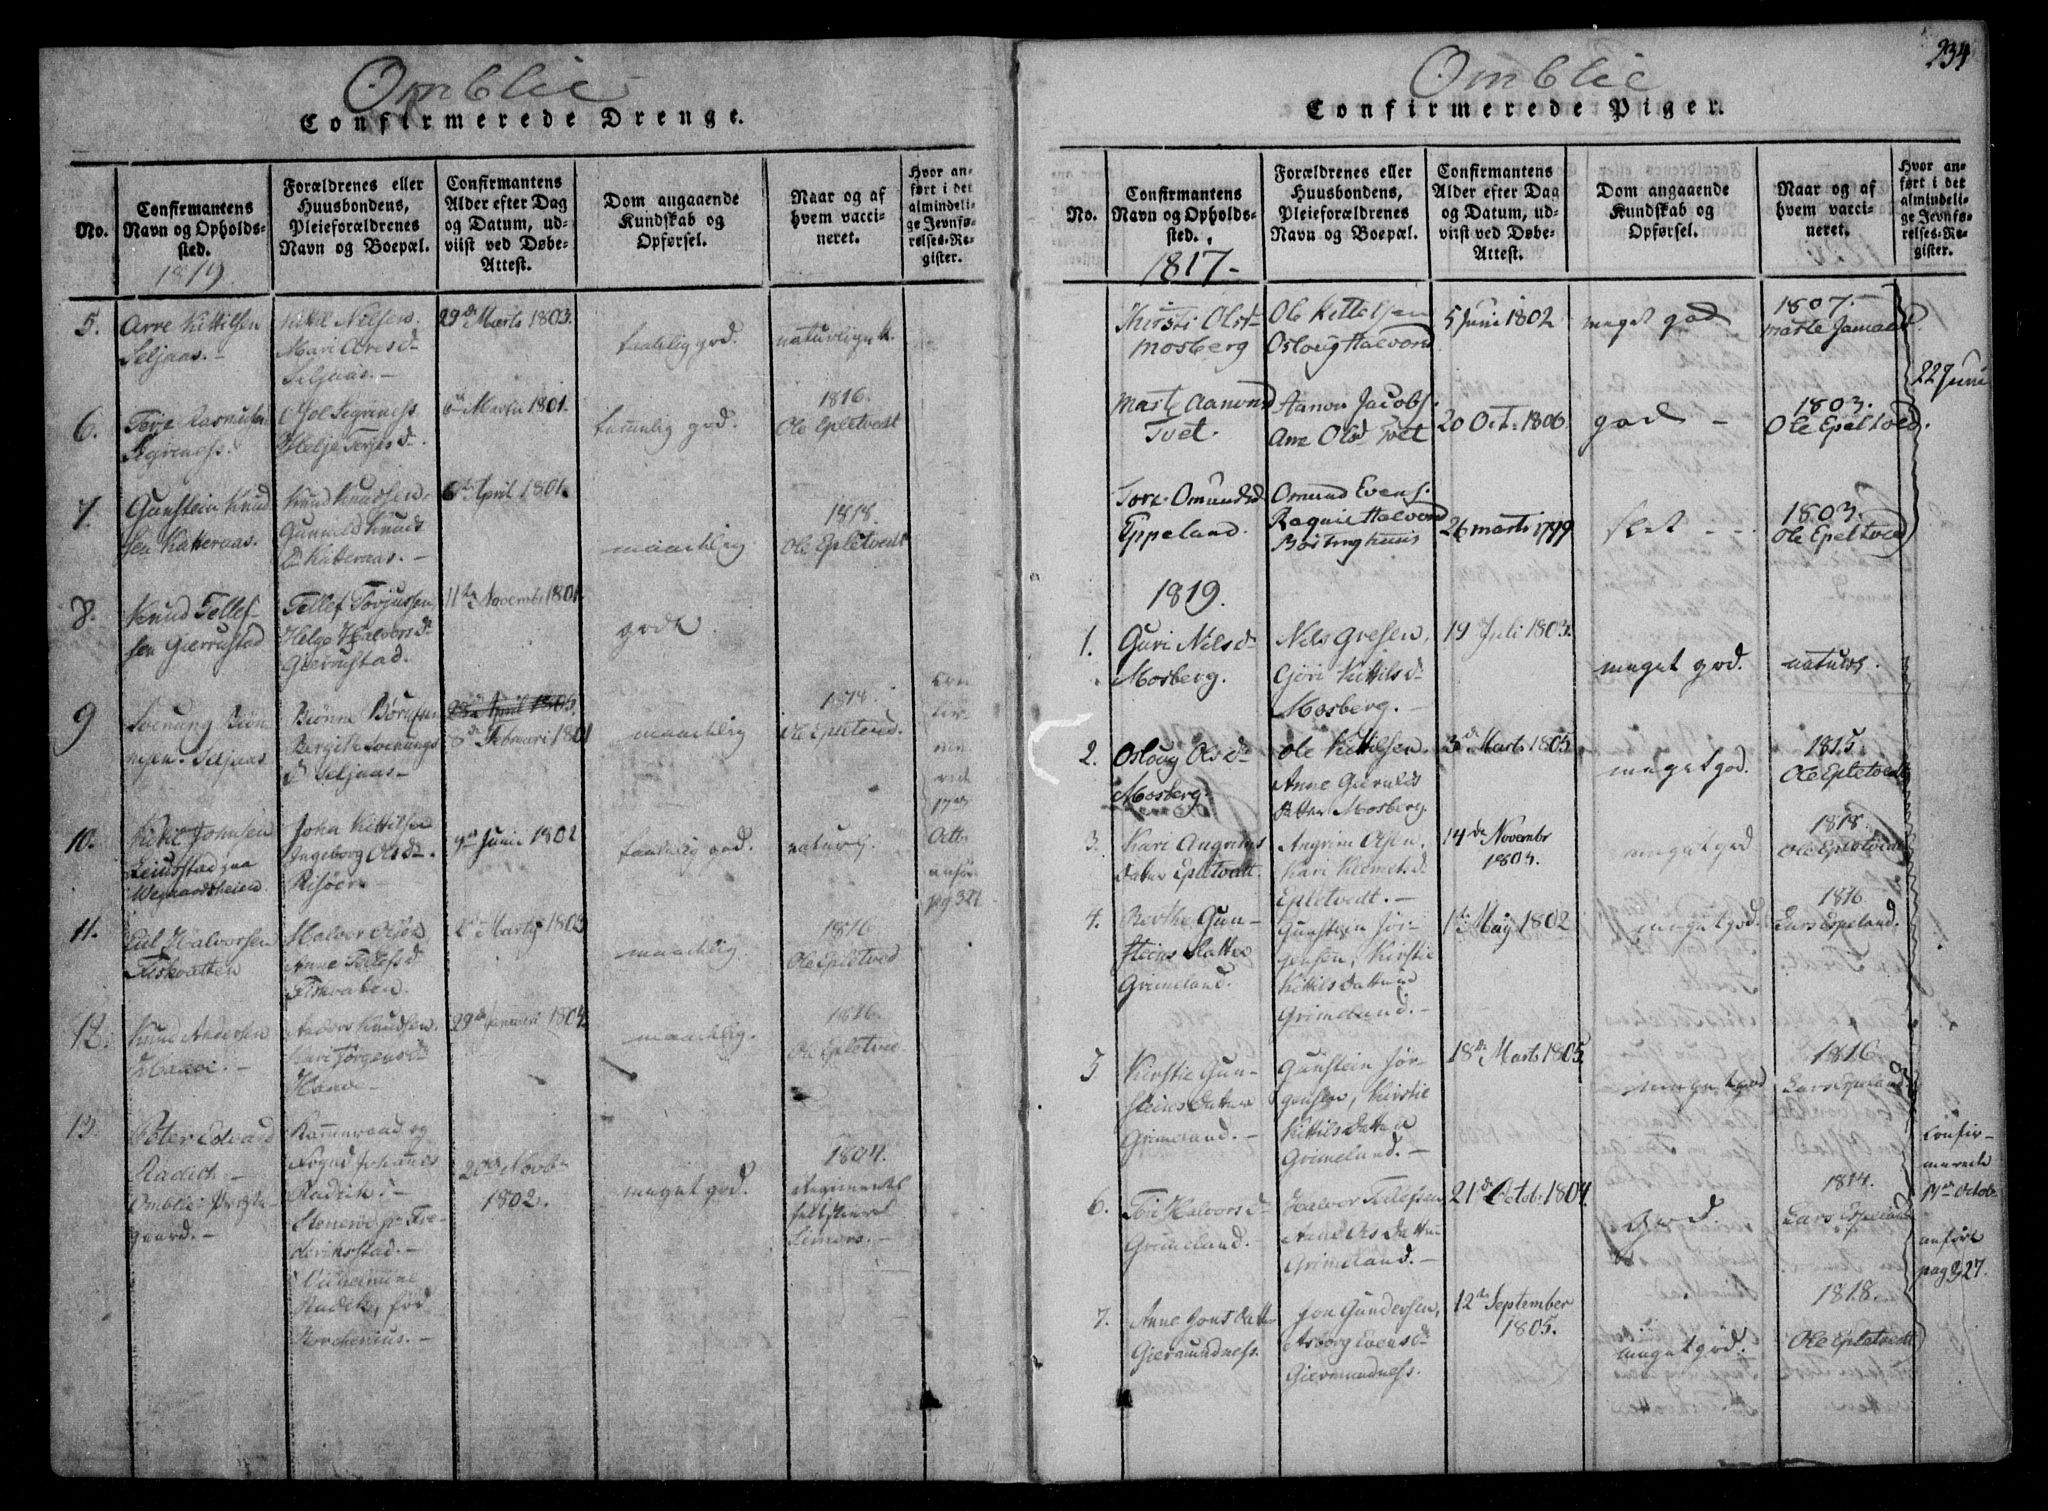 Omblie
Confirmerede Drenge.
No.
Confirmantens
Navn og Opholds-
sted.
1819.
Forældrenes eller
Huusbondens,
Pleieforældrenes
Navn og Boepæl.
Confirmantens
Alder efter Dag
og Datum, ud-
viist ved Døbe-
Attest.
Dom angaaende
Kundskab og
Opførsel.
Naar og af
hvem vacci-
neret.
Hvor an-
ført i det
almindeli-
ge Jevnfø-
relses-Re-
gister.
5.
Arre Kittilsen
Seljaas.
Kittil Nelsen
Mari Aresd
Seljaas.
29de Marts 1803.
temlig god.
naturlig
6.
Terje Rasmusen
Sigrenes.
Helje Terjesd.
6te Martii 1801.
temmelig god.
1816.
Ole Epletvedt
7.
Gunstein Knud
sen Katteraas.
Knud Knudsen
Gunnild Knuds
D Katteraas.
6te April 1801.
maadelig
1818.
Ole Epletvedt
8.
Knud Tellef-
sen Gierrustad
Tellef Torjussen
Helge Halvorsd
Gierrustad.
11te Novemb: 1801
godt
9
Soenung Biøn
nsen. Seljaas
Biønne Børusen
Bergith Soenungs
d Seljaas
28de April 1805.
8de Februari 1801
maadelig
1818.
Ole Epletved.
10.
Kittil Johnsen
Leiustad paa
Wegaardsheien
John Kittilsen
Ingeborg Olsd.
Risøer
Junii 1802
temlig god.
naturl.
11.
Halvorsen
Fiskvatten
Halvor
Anne Tellefsd
Fiskvaten.
2de Martij 1803
maadelig.
1816
Ole Epletved
12.
Knud Andersen
Haave.
Anders Knudsen.
Kari Jørgensd
Haave
29de Januari 1804.
maadelig.
1816
Ole Epletved.
13.
Peter Edvard
Radich
Omblie Præste-
gaard.
Kammerraad og
Foged Johannes
Radich
Stenerøe p: Fre-
drikstad.
Vilhelmine
Radich, fød
20de Novb
1802.
meget god.
1804.
Regiments
feltskeer
Simers.
Con
fir-
me
rede
17de
Octb.
anført
pag 327
234
Omblie
Confirmerede Piger.
No.
Confirmantens
Navn og Opholds-
sted.
1817.
Forældrenes eller
Huusbondens,
Pleieforældrenes
Navn og Boepæl.
Confirmantens
Alder efter Dag
og Datum, ud-
viist ved Døbe-
Attest.
Dom angaaende
Kundskab og
Opførsel.
Naar og af
hvem vacci-
neret.
Hvor an-
ført i det
almindeli-
ge Jevnfø-
relses-Re-
gister.
Kirsti Olsd
Mosberg
Ole Kittelsen
Osloug Halvord
5 Juni 1802
meget god
1807.
22 Juni
Marte Aamond
Tvet.
Aanon Jacobs:
Ane Olsd Tvet
20 Oct: 1800
god
1803.
Ole Epeltved.
Tore Omundsd
Eppeland.
Omund Evens:
Ragnil Halvord
26 marts 1799
slet
1803.
Ole Epeltved
1819.
1.
Guri Nelsd
Mosberg.
Nels Gresen,
Gjøri Kittilsd
Mosberg.
19 Juli 1803.
meget god.
naturl.
2.
Osloug Olsd
Mosberg.
Ole Kittilsen.
Anne Gierulfs
datter Mosberg.
3de Marts 1805.
meget god.
1815.
Ole Epletvedt
3.
Kari Angrims
datter Epletvedt.
Angrim Olsen.
Kari Klemetsd
Epletvedt.
14de Novembr
1804.
meget god
1818.
Ole Epletvedt
4.
Berthe Gun-
steins datter
Grimeland.
Gunstein Jør-
gensen, Kirstie
Kittils Datter
Grimeland.
1ste May 1802
meget god.
1816
Lars Espeland.
5.
Kirstie Gun-
steins Datter
Grimeland.
Gunstein Jør-
gensen, Kirstie
Kittils Datter
Grimeland.
18de Marts 1805
meget god
1816
Lars Espeland
6.
Tore Halvorsd
Grimeland.
Halvor Tellefsen
Anne Ols Datter
Grimeland.
21de Octob: 1804.
god
1814.
Lars Espeland
7.
Anne Jons datter
Giermundnes.
Jon Gundersen,
Asborg Evensd
Giermundnes.
12te September
1805.
meget god.
1818.
Ole Epletvedt
Confir-
merede
17de Octob:
anført
pag 327.